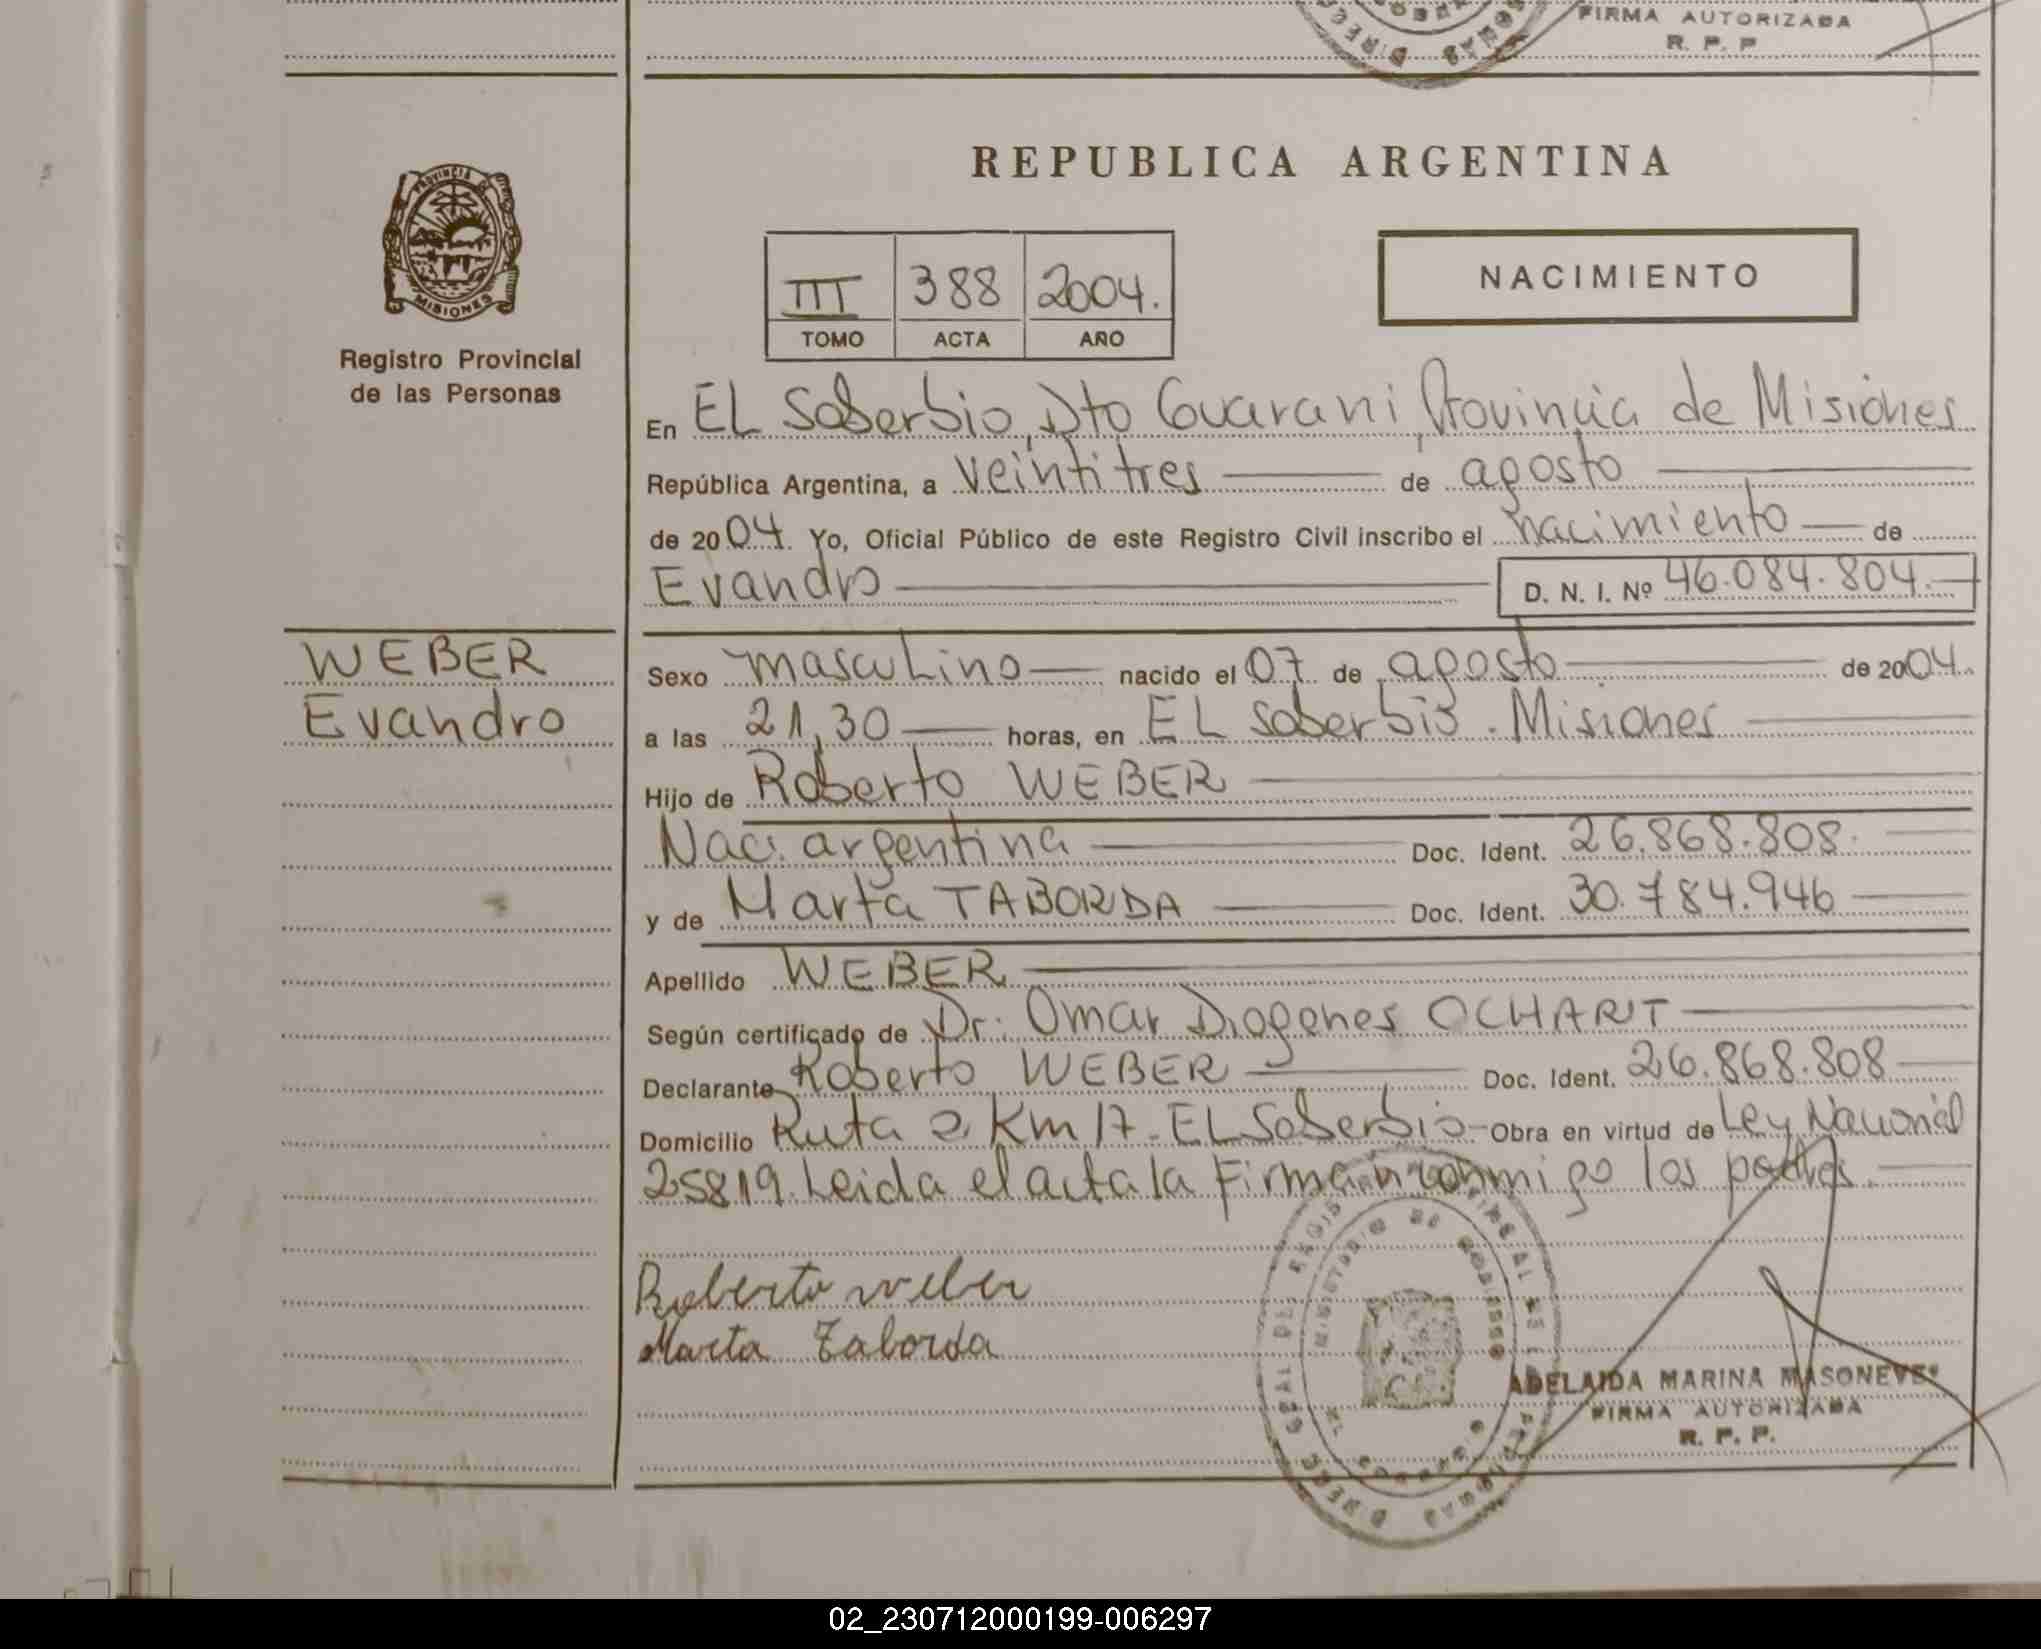 FIRMA AUTORIZADA
R. P. P
PROVINCIA DE
MISIONES
Registro Provincial
de las Personas
REPUBLICA ARGENTINA
III 388 2004.
TOMO ACTA AÑO
NACIMIENTO
En EL Soberbio, Dto Guarani, Provincia de Misiones
República Argentina, a veintitres de agosto
de 2004. Yo, Oficial Público de este Registro Civil inscribo el nacimiento de
Evandro D. N. I. Nº 46.084.804.
WEBER
Evandro
Sexo masculino nacido el 07 de agosto de 2004.
a las 21,30 horas, en EL Soberbio. Misiones
Hijo de Roberto WEBER
Nac. argentina Doc. Ident. 26.868.808.
y de Marta TABORDA Doc. Ident. 30.784.946
Apellido WEBER
Según certificado de Dr. Omar Diogenes
Declarante Roberto WEBER Doc. Ident. 26.868.808
Domicilio Ruta 2 Km 17. EL Soberbio- Obra en virtud de Ley Nacional
25819. Leida el acta la Firman conmigo los padres.
Roberto weber
Marta Taborda
MINISTERIO DE GOBIERNO
ADELAIDA MARINA
FIRMA AUTORIZADA
R. P. P.
02_230712000199-006297